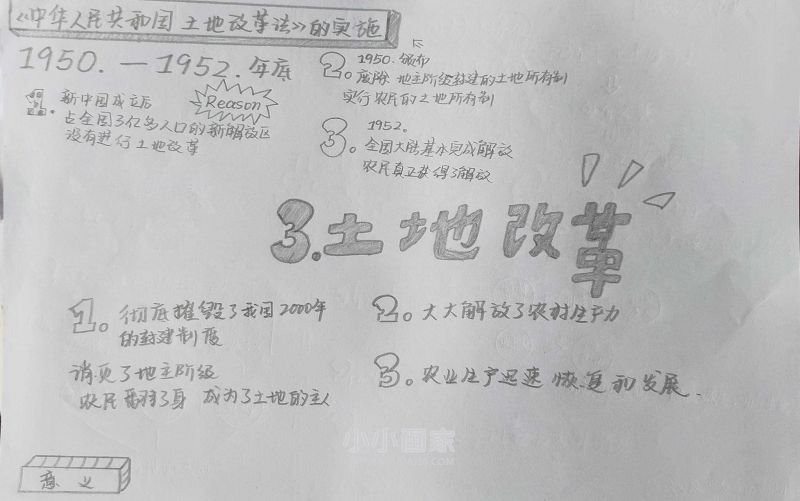 《中华人民共和国土地改革法》的实施
1950.—1952.年底
Reason
1.新中国成立后
占全国3亿多人口的新解放区
没有进行土地改革
2.1950.颁布
废除地主阶级封建的土地所有制
实行农民的土地所有制
3.1952.
全国大陆基本完成解放
农民真正获得了解放
3.土地改革
1.彻底摧毁了我国2000年
的封建制度
消灭了地主阶级
农民翻了身 成为了土地的主人
2.大大解放了农村生产力
3.农业生产迅速恢复和发展.
意义
小小画家